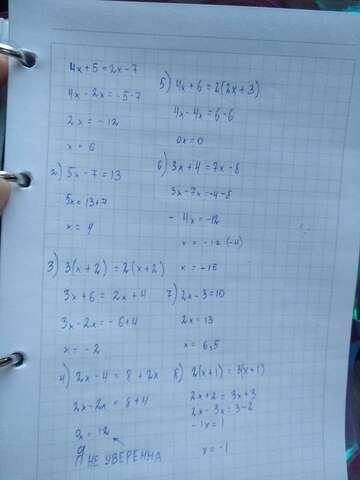 4x+5=2x-7
4x-2x=-5-7
2x=-12
x=6
2) 5x-7=13
5x=13+7
x=4
3) 3(x+2)=2(x+2)
3x+6=2x+4
3x-2x=-6+4
x=-2
4) 2x-4=8+2x
2x-2x=8+4
=12
Я НЕ УВЕРЕННА
5) 4x+6=2(2x+3)
4x-4x=6-6
0x=0
6) 3x+4=7x-8
3x-7x=-4-8
-4x=-12
x=-12(-4)
7) 2x-3=10
2x=13
x=6,5
8) 2(x+1)=3(x+1)
2x+2=3x+3
2x-3x=3-2
-1x=1
x=-1